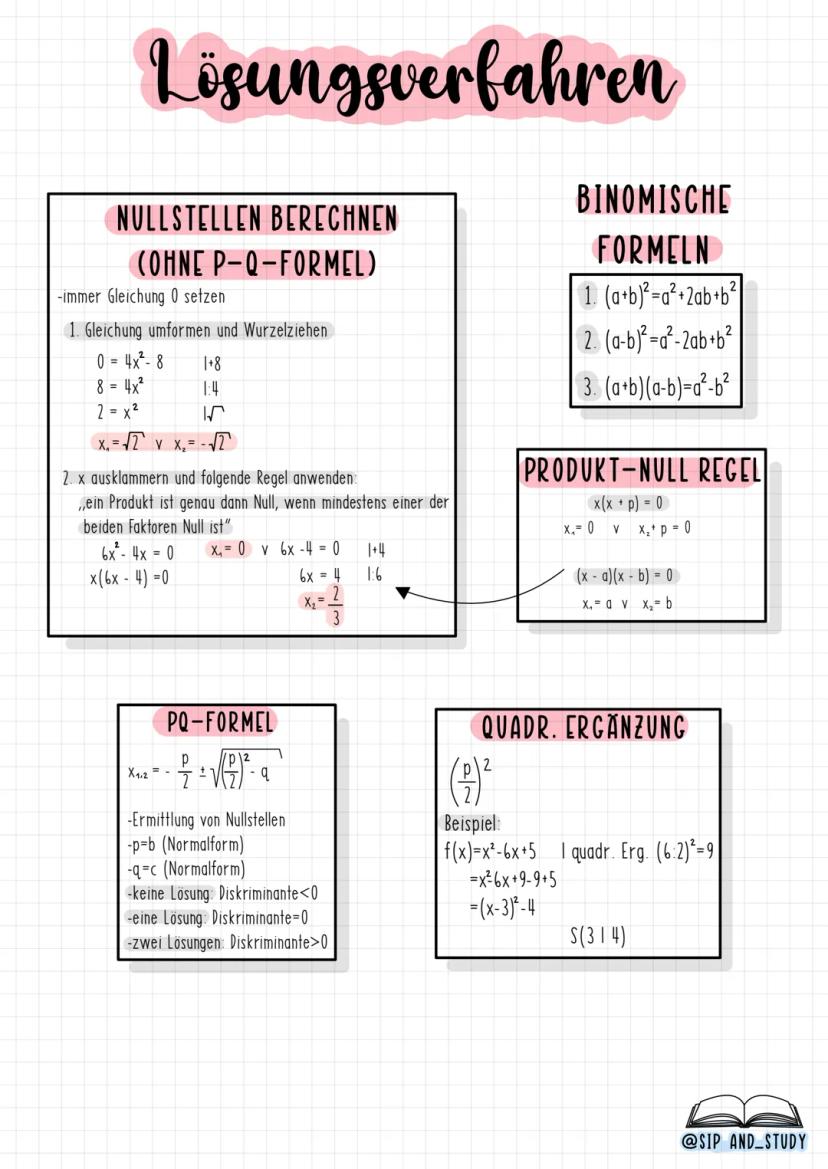 Lösungsverfahren
NULLSTELLEN BERECHNEN
(OHNE P-Q-FORMEL)
-immer Gleichung 0 setzen
1. Gleichung umformen und Wurzelziehen
0 = 4x² - 8 |+8
8 = 4x² |:4
2 = x² |√
x₁ = √2 v x₂ = -√2
2. x ausklammern und folgende Regel anwenden:
„ein Produkt ist genau dann Null, wenn mindestens einer der
beiden Faktoren Null ist"
6x² - 4x = 0 x₁ = 0 v 6x - 4 = 0 |+4
x(6x - 4) =0 6x = 4 |:6
x₂ = 2/3
BINOMISCHE
FORMELN
1. (a+b)²=a²+2ab+b²
2. (a-b)²=a²-2ab+b²
3. (a+b)(a-b)=a²-b²
PRODUKT-NULL REGEL
x(x + p) = 0
x₁= 0 v x₂+ p = 0
(x - a)(x - b) = 0
x₁= a v x₂= b
PQ-FORMEL
x₁,₂ = - p/2 ± √((p/2)² - q)
-Ermittlung von Nullstellen
-p=b (Normalform)
-q=c (Normalform)
-keine Lösung: Diskriminante<0
-eine Lösung: Diskriminante=0
-zwei Lösungen: Diskriminante>0
QUADR. ERGÄNZUNG
(p/2)²
Beispiel:
f(x)=x²-6x+5 | quadr. Erg. (6:2)²=9
=x²-6x+9-9+5
=(x-3)²-4
S(3|4)
@SIP_AND_STUDY